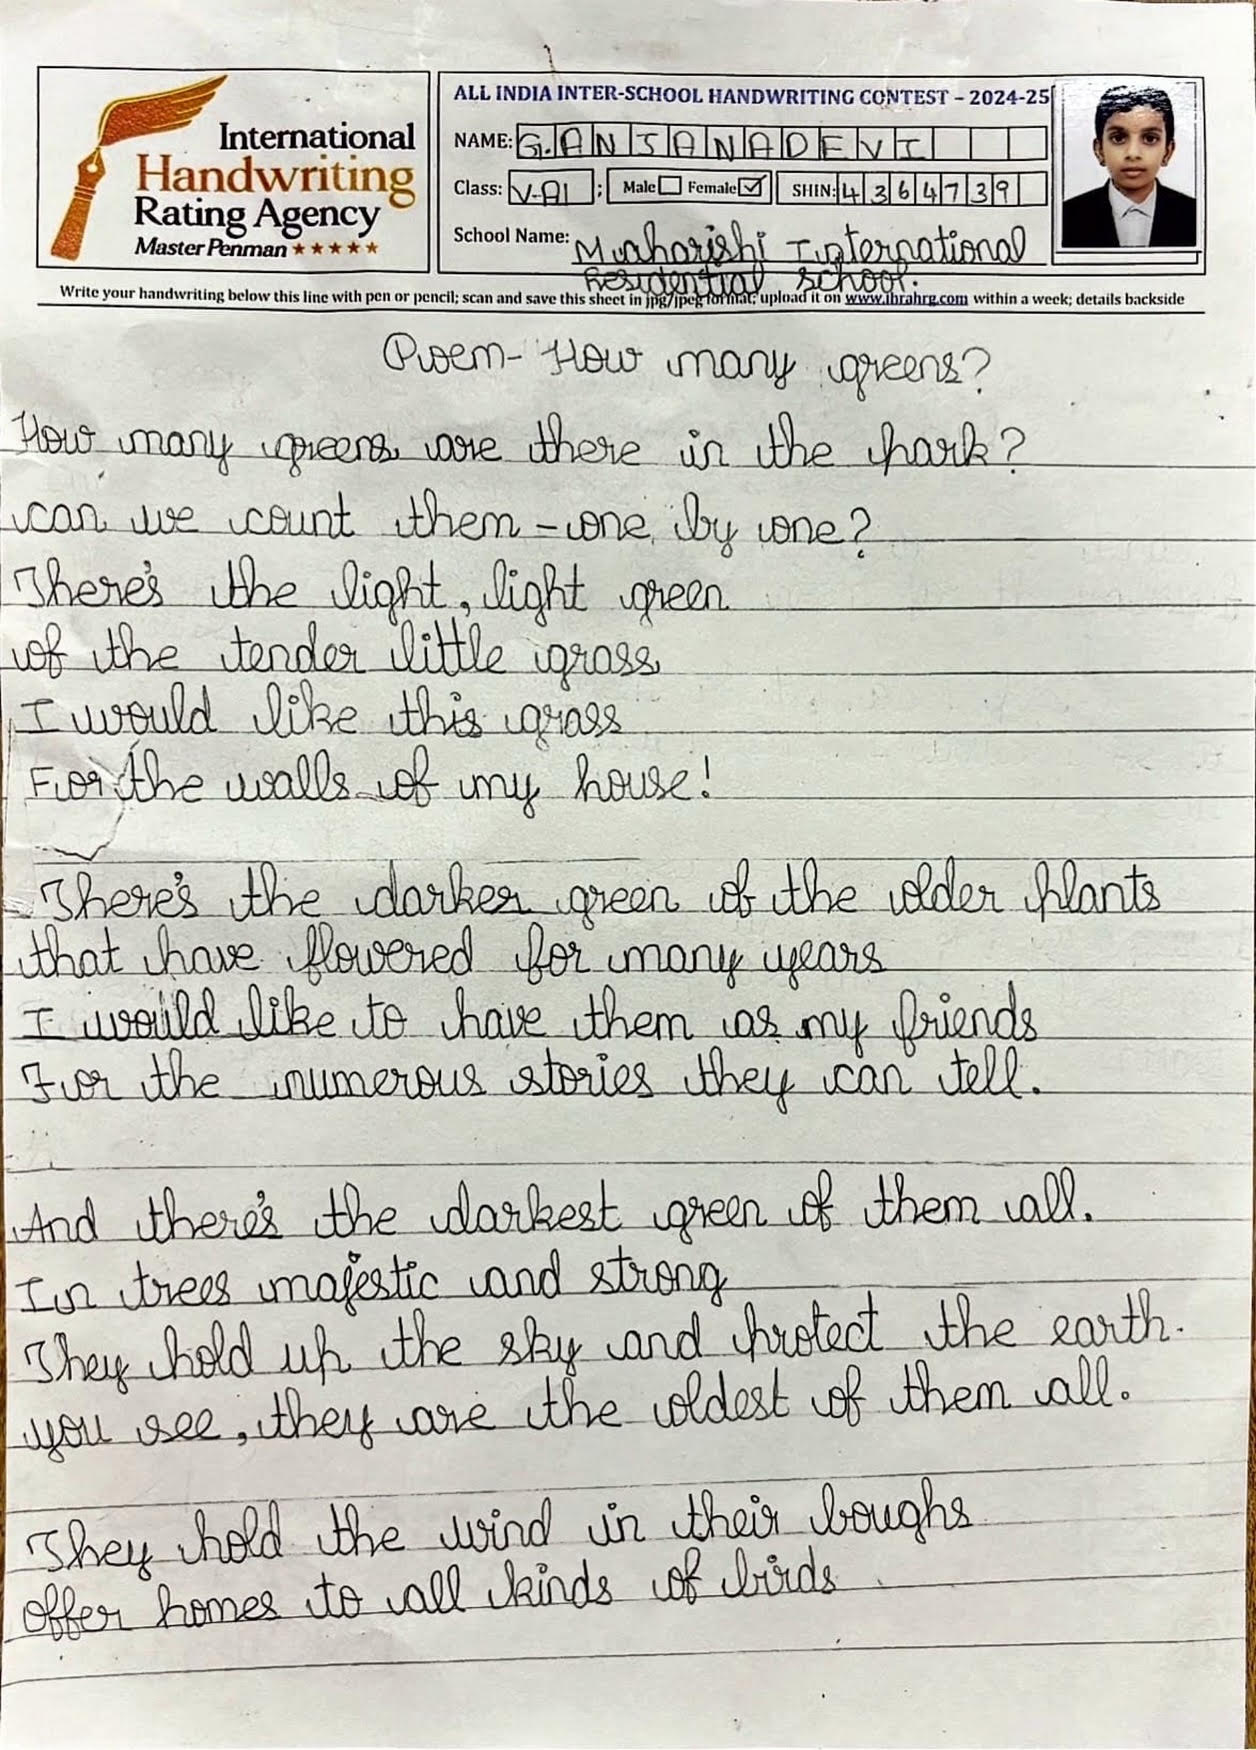 International
Handwriting
Rating Agency
Master Penman ★★★★★
ALL INDIA INTER-SCHOOL HANDWRITING CONTEST – 2024-25
NAME: G.ANJANADEVI
Class: V-A1 ; Male Female ✓ SHIN: 4364739
School Name: Maharishi International
Residential School.
Write your handwriting below this line with pen or pencil; scan and save this sheet in jpg/jpeg format; upload it on www.ihrahrg.com within a week; details backside
Poem- How many greens?
How many greens are there in the park?
can we count them – one by one?
There's the light, light green
of the tender little grass
I would like this grass
For the walls of my house!
There's the darker green of the older plants
that have flowered for many years
I would like to have them as my friends
For the numerous stories they can tell.
And there's the darkest green of them all.
In trees majestic and strong
They hold up the sky and protect the earth.
you see, they are the oldest of them all.
They hold the wind in their boughs
offer homes to all kinds of birds